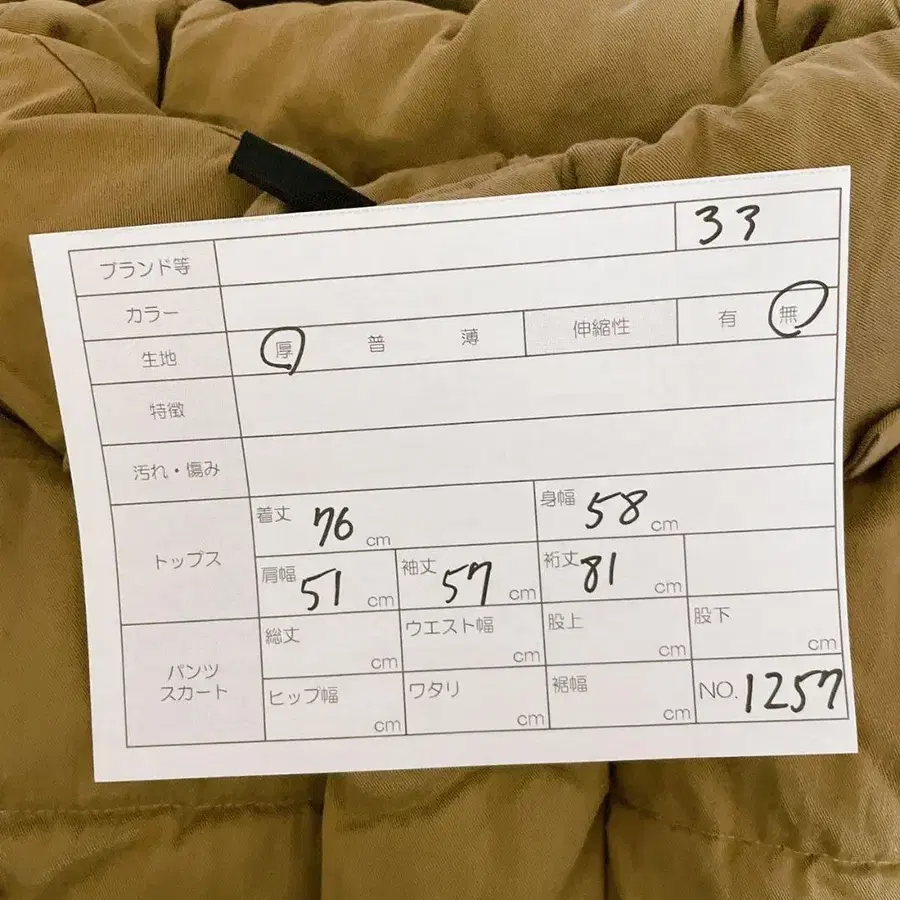 33
ブランド等
カラー
生地 厚 普 薄 伸縮性 有 無
特徴
汚れ・傷み
トップス
着丈 76 cm 身幅 58 cm
肩幅 51 cm 袖丈 57 cm 裄丈 81 cm
パンツ
スカート
総丈 cm ウエスト幅 cm 股上 cm 股下 cm
ヒップ幅 cm ワタリ cm 裾幅 cm NO. 1257